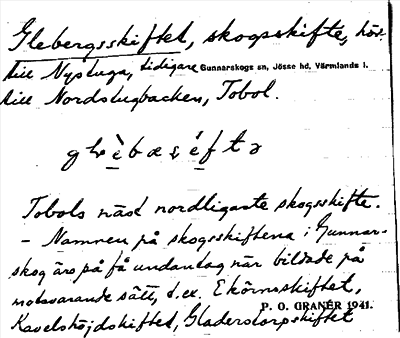 Glebergsskiftet, skogsskifte, hör
till Nystuga, tidigare Gunnarskogs sn, Jösse hd, Värmlands l.
till Nordstugbacken, Tobol.
Tobols näst nordligaste skogsskifte.
- Namnen på skogsskiftena i Gunnar-
skog äro på få undantag när bildade på
motsvarande sätt, t.ex. Ekörnsskiftet,
P. O. GRANÉR 1941.
Kavelshöjdskiftet, Gladerstorpskiftet